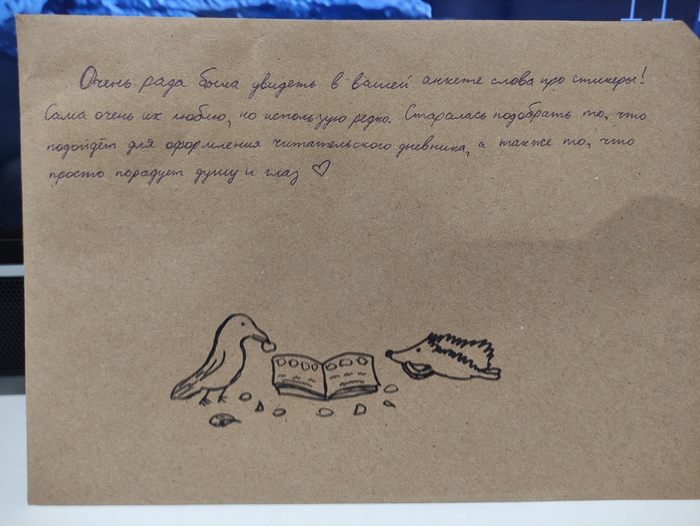 Очень рада была увидеть в вашей анкете слова про стикеры!
Сама очень их люблю, но использую редко. Старалась подобрать то, что
подойдёт для оформления читательского дневника, а также то, что
просто порадует душу и глаз ♡